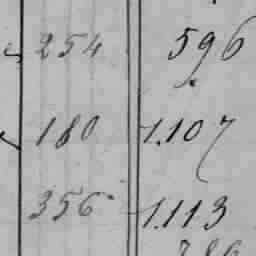 254 596
180 1.107
356 1.113